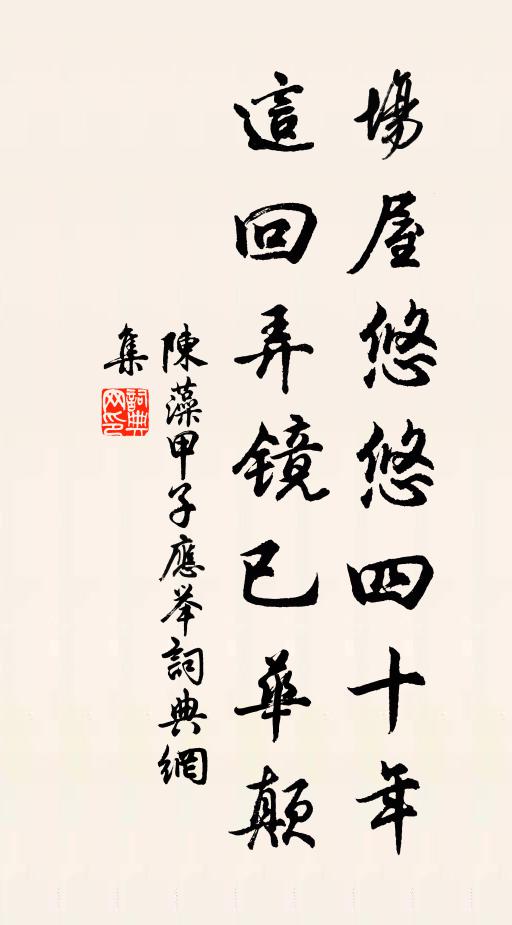 場屋悠悠四十年
這回弄镜已華颠
陳藻甲子應举詞典網
集
詞典网印